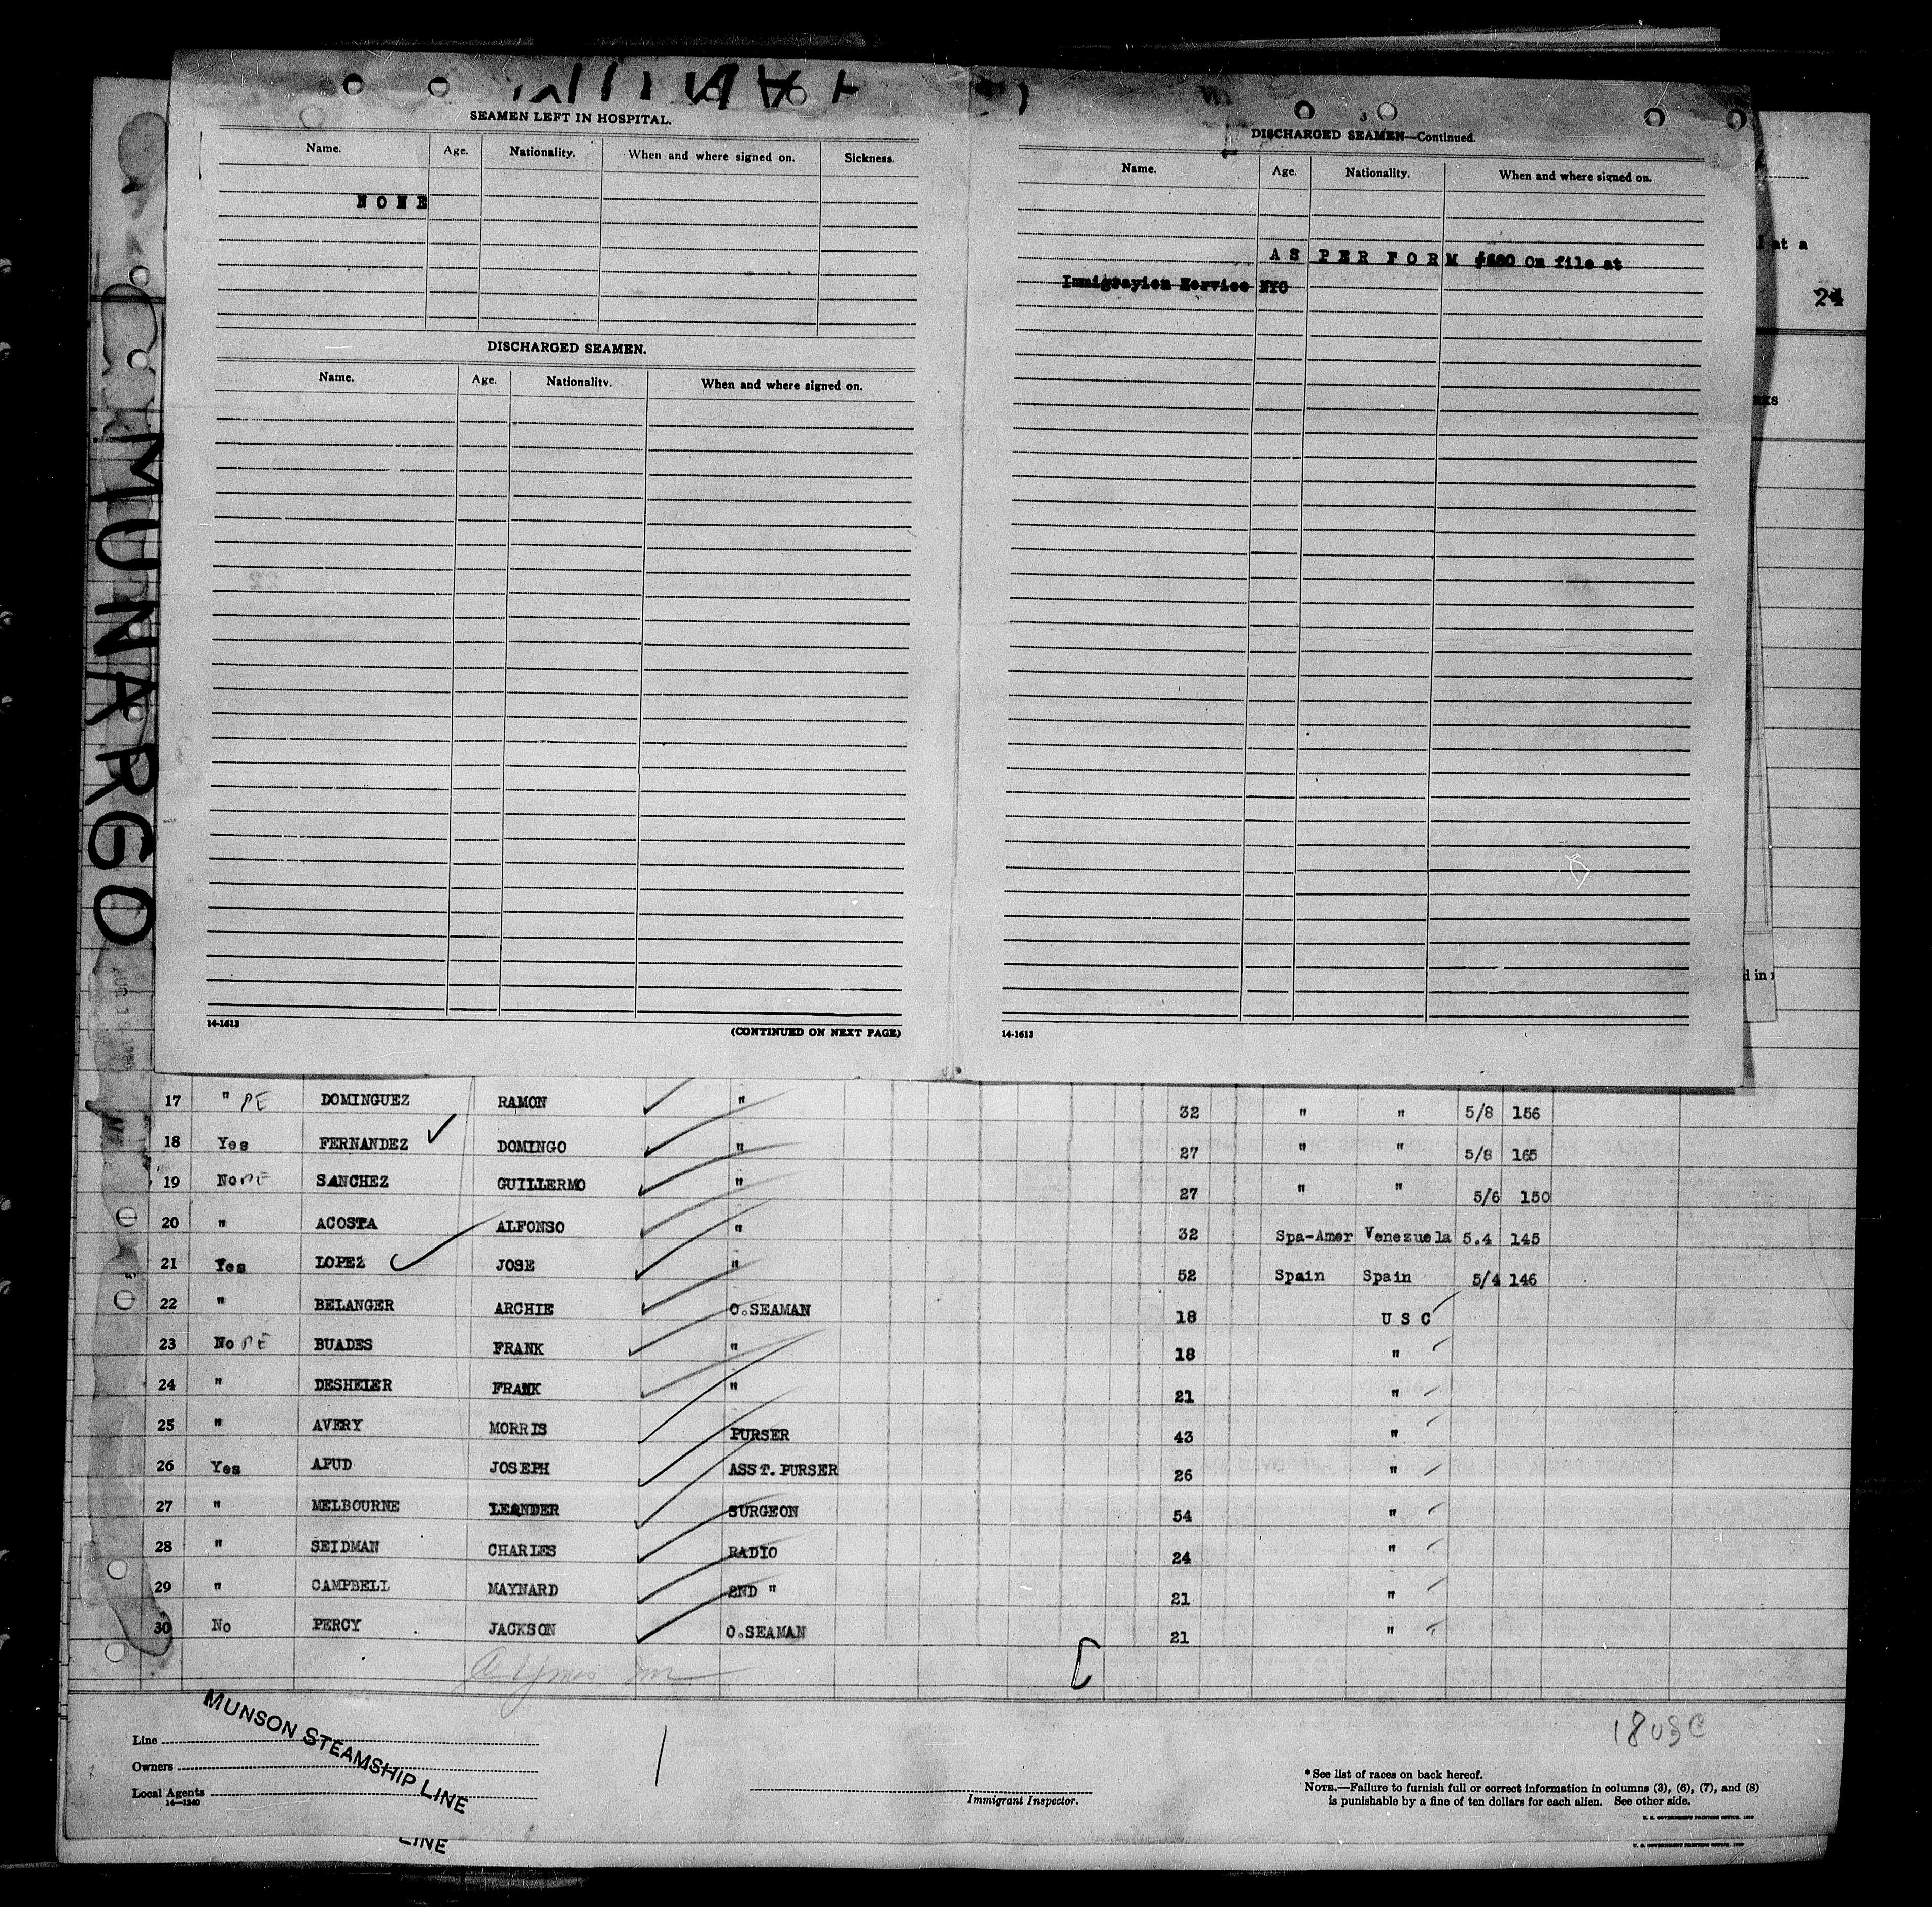 SEAMEN LEFT IN HOSPITAL.
Name. Age. Nationality. When and where signed on. Sickness.
NONE
DISCHARGED SEAMEN.
Name. Age. Nationality. When and where signed on.
14-1613 (CONTINUED ON NEXT PAGE)
3
DISCHARGED SEAMEN—Continued.
Name. Age. Nationality. When and where signed on.
AS PER FORM #680 On file at
Immigrayion Service NYC
14-1613
at a
24
d in
MUNARGO
17 " PE DOMINGUEZ RAMON " 32 " " 5/8 156
18 Yes FERNANDEZ DOMINGO " 27 " " 5/8 165
19 No PE SANCHEZ GUILLERMO " 27 " " 5/6 150
20 " ACOSTA ALFONSO " 32 Spa-Amer Venezuela 5.4 145
21 Yes LOPEZ JOSE " 52 Spain Spain 5/4 146
22 " BELANGER ARCHIE O.SEAMAN 18 U S C
23 No PE BUADES FRANK " 18 "
24 " DESHELER FRANK " 21 "
25 " AVERY MORRIS PURSER 43 "
26 Yes APUD JOSEPH ASST. PURSER 26 "
27 " MELBOURNE LEANDER SURGEON 54 "
28 " SEIDMAN CHARLES RADIO 24 "
29 " CAMPBELL MAYNARD 2ND " 21 "
30 No PERCY JACKSON O.SEAMAN 21 "
18 USC
Line
Owners
Local Agents
14—1240
MUNSON STEAMSHIP LINE
LINE
Immigrant Inspector.
* See list of races on back hereof.
NOTE.—Failure to furnish full or correct information in columns (3), (6), (7), and (8)
is punishable by a fine of ten dollars for each alien. See other side.
U. S. GOVERNMENT PRINTING OFFICE. 1930
U. S. GOVERNMENT PRINTING OFFICE. 1930